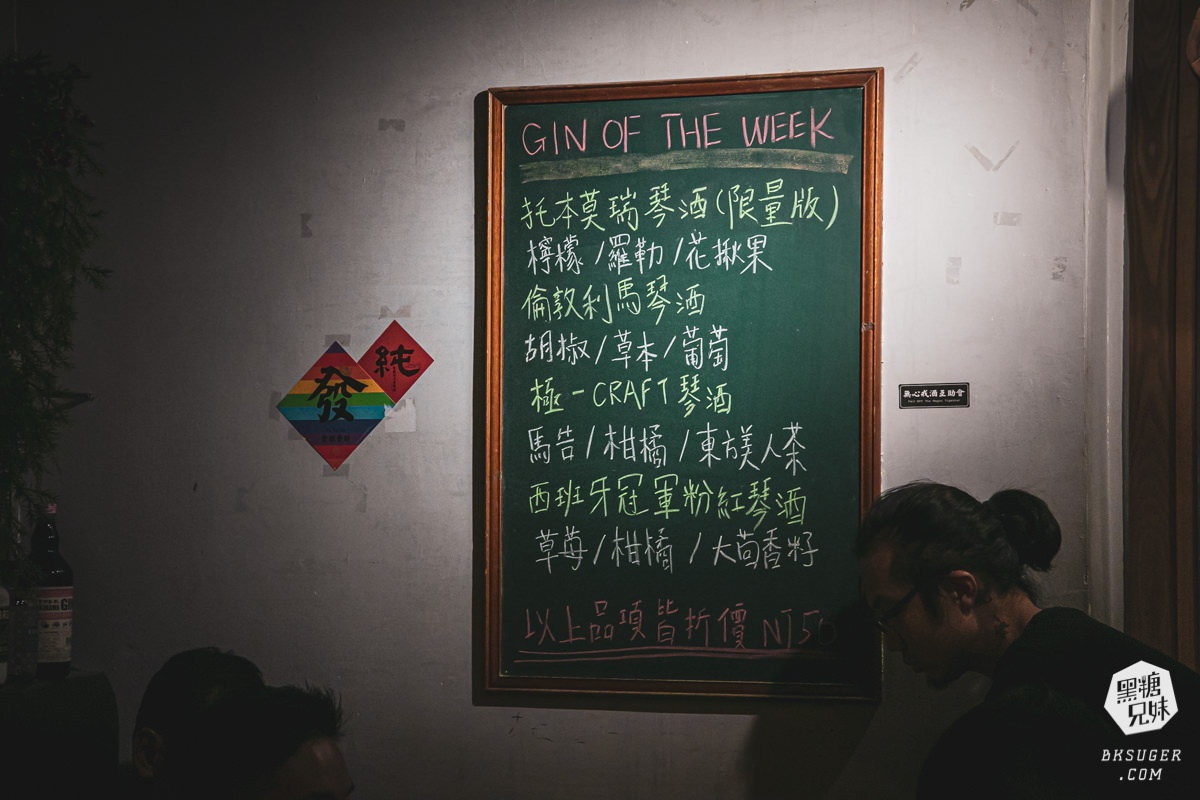 GIN OF THE WEEK
托本莫瑞琴酒(限量版)
檸檬/羅勒/花揪果
倫敦利馬琴酒
胡椒/草本/葡萄
極一CRAFT琴酒
馬告/柑橘/東方美人茶
西班牙冠軍粉紅琴酒
草莓/柑橘/大茴香籽
以上品項皆折價 NT50
純
發
無心戒酒互助會
黑糖
兄妹
BKSUGER
.COM